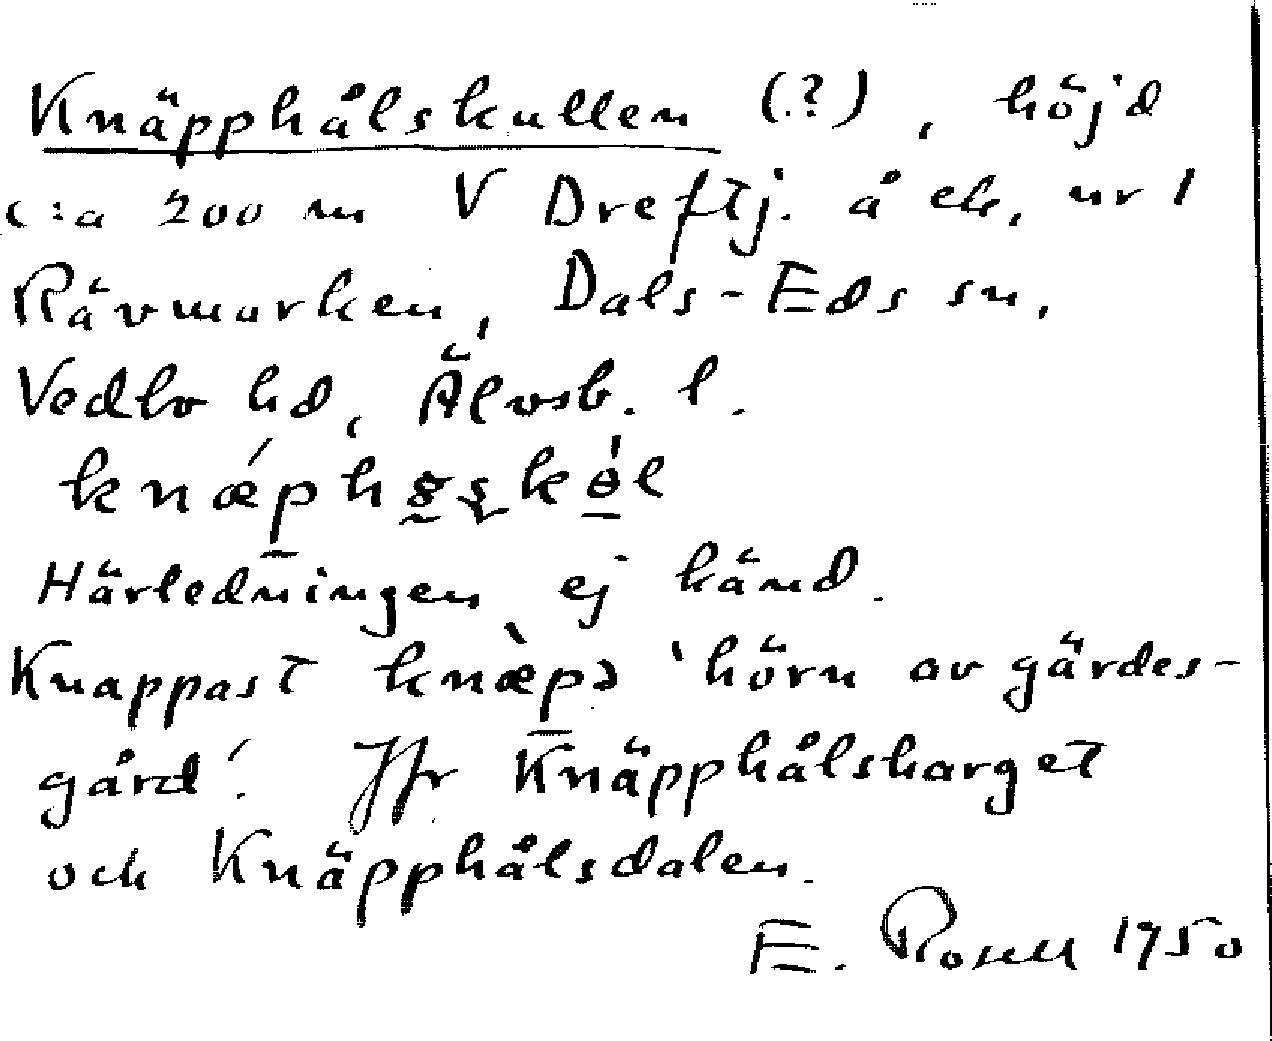 Knäpphålskullen (?), höjd
c:a 200 m V Dreftj. å ek. nr 1
Rävmarken, Dals-Eds sn,
Vedbo hd, Älvsb. l.
Härledningen ej känd.
Knappast knæpə 'hörn av gärdes-
gård'. Jfr Knäpphålsharget
och Knäpphålsdalen.
E. Rosell 1950